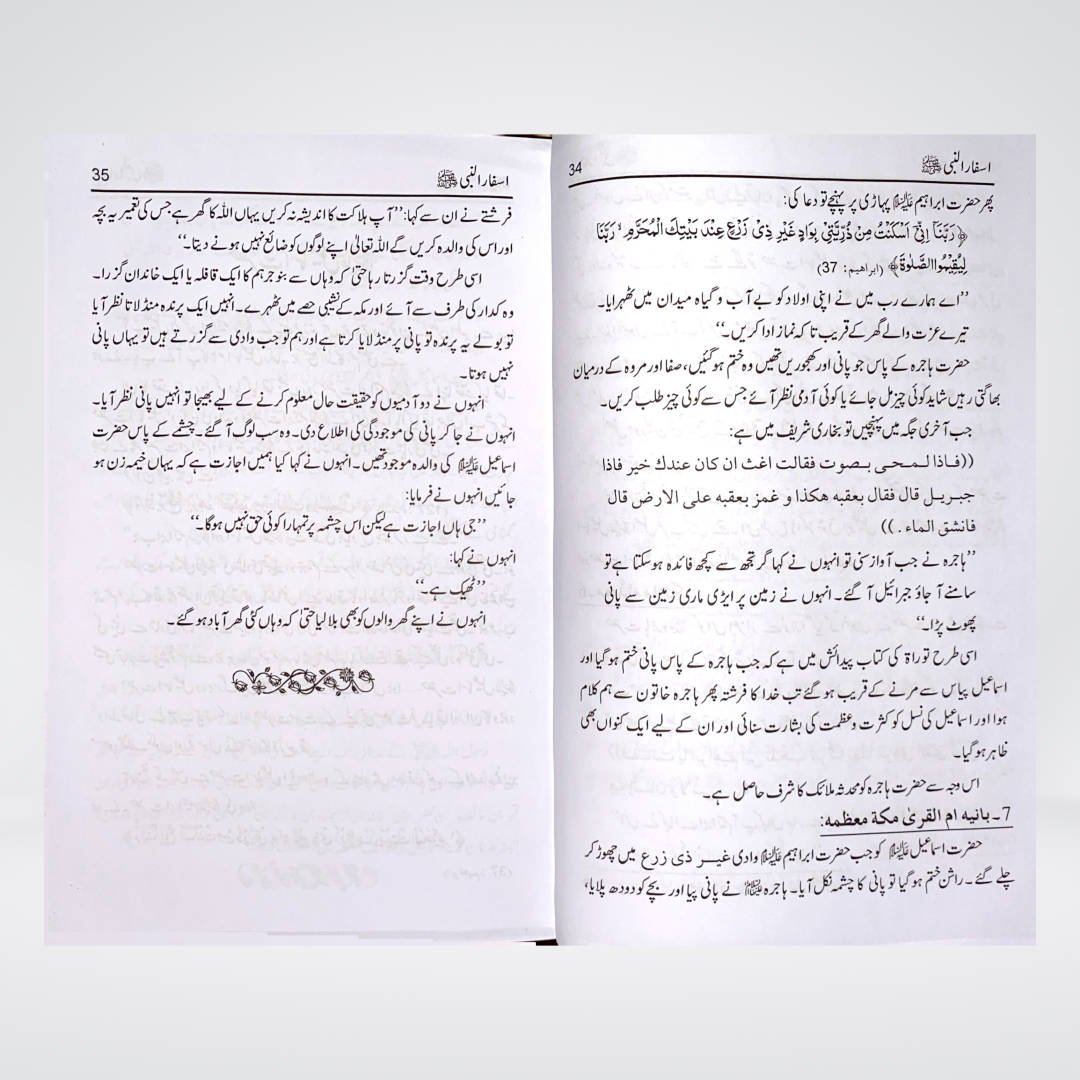 اسفار النبی ﷺ 34
پھر حضرت ابراہیم علیہ السلام پہاڑی پر پہنچے تو دعا کی:
﴿رَبَّنَآ اِنِّیْٓ اَسْکَنْتُ مِنْ ذُرِّیَّتِیْ بِوَادٍ غَیْرِ ذِیْ زَرْعٍ عِنْدَ بَیْتِكَ الْمُحَرَّمِ ۙ رَبَّنَا
لِیُقِیْمُوا الصَّلٰوةَ﴾ (ابراھیم: 37)
’’اے ہمارے رب میں نے اپنی اولاد کو بے آب و گیاہ میدان میں ٹھہرایا۔
تیرے عزت والے گھر کے قریب تا کہ نماز ادا کریں۔‘‘
حضرت ہاجرہ کے پاس جو پانی اور کھجوریں تھیں وہ ختم ہو گئیں، صفا اور مروہ کے درمیان
بھاگتی رہیں شاید کوئی چیز مل جائے یا کوئی آدمی نظر آئے جس سے کوئی چیز طلب کریں۔
جب آخری جگہ میں پہنچیں تو بخاری شریف میں ہے:
((فاذا لمحی بصوت فقالت اغث ان کان عندك خیر فاذا
جبریل قال فقال بعقبه هکذا و غمز بعقبه علی الارض قال
فانشق الماء .))
’’ہاجرہ نے جب آواز سنی تو انہوں نے کہا گر تجھ سے کچھ فائدہ ہو سکتا ہے تو
سامنے آ جاؤ جبرائیل آ گئے۔ انہوں نے زمین پر ایڑی ماری زمین سے پانی
پھوٹ پڑا۔‘‘
اسی طرح توراۃ کی کتاب پیدائش میں ہے کہ جب ہاجرہ کے پاس پانی ختم ہو گیا اور
اسماعیل پیاس سے مرنے کے قریب ہو گئے تب خدا کا فرشتہ پھر ہاجرہ خاتون سے ہم کلام
ہوا اور اسماعیل کی نسل کو کثرت و عظمت کی بشارت سنائی اور ان کے لیے ایک کنواں بھی
ظاہر ہو گیا۔
اس وجہ سے حضرت ہاجرہ کو محدثہ ملائک کا شرف حاصل ہے۔
7۔ بانیه ام القریٰ مکة معظمه:
حضرت اسماعیل علیہ السلام کو جب حضرت ابراہیم علیہ السلام وادی غیر ذی زرع میں چھوڑ کر
چلے گئے۔ راشن ختم ہو گیا تو پانی کا چشمہ نکل آیا۔ ہاجرہ علیہا السلام نے پانی پیا اور بچے کو دودھ پلایا،
اسفار النبی ﷺ 35
فرشتے نے ان سے کہا: ’’آپ ہلاکت کا اندیشہ نہ کریں یہاں اللہ کا گھر ہے جس کی تعمیر یہ بچہ
اور اس کی والدہ کریں گے اللہ تعالیٰ اپنے لوگوں کو ضائع نہیں ہونے دیتا۔‘‘
اسی طرح وقت گزرتا رہا حتیٰ کہ وہاں سے بنو جرہم کا ایک قافلہ یا ایک خاندان گزرا۔
وہ کدار کی طرف سے آئے اور مکہ کے نشیبی حصے میں ٹھہرے۔ انہیں ایک پرندہ منڈلاتا نظر آیا
تو بولے یہ پرندہ تو پانی پر منڈلایا کرتا ہے اور ہم تو جب وادی سے گزرتے ہیں تو یہاں پانی
نہیں ہوتا۔
انہوں نے دو آدمیوں کو حقیقت حال معلوم کرنے کے لیے بھیجا تو انہیں پانی نظر آیا۔
انہوں نے جا کر پانی کی موجودگی کی اطلاع دی۔ وہ سب لوگ آ گئے۔ چشمے کے پاس حضرت
اسماعیل علیہ السلام کی والدہ موجود تھیں۔ انہوں نے کہا کیا ہمیں اجازت ہے کہ یہاں خیمہ زن ہو
جائیں انہوں نے فرمایا:
’’جی ہاں اجازت ہے لیکن اس چشمہ پر تمہارا کوئی حق نہیں ہوگا۔‘‘
انہوں نے کہا:
’’ٹھیک ہے۔‘‘
انہوں نے اپنے گھر والوں کو بھی بلا لیا حتیٰ کہ وہاں کئی گھر آباد ہو گئے۔